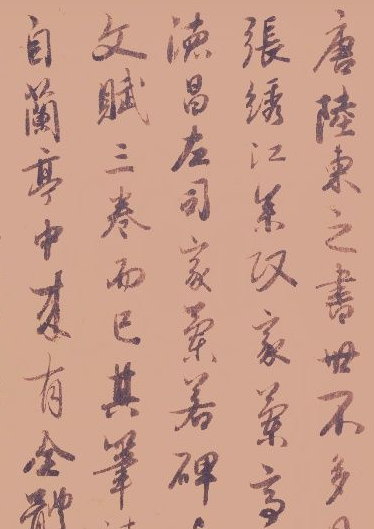 唐陸柬之書世不多
張綉江叅政家蘭亭
德昌左司家蘭若碑
文賦三卷而已其筆
自蘭亭中來有全體